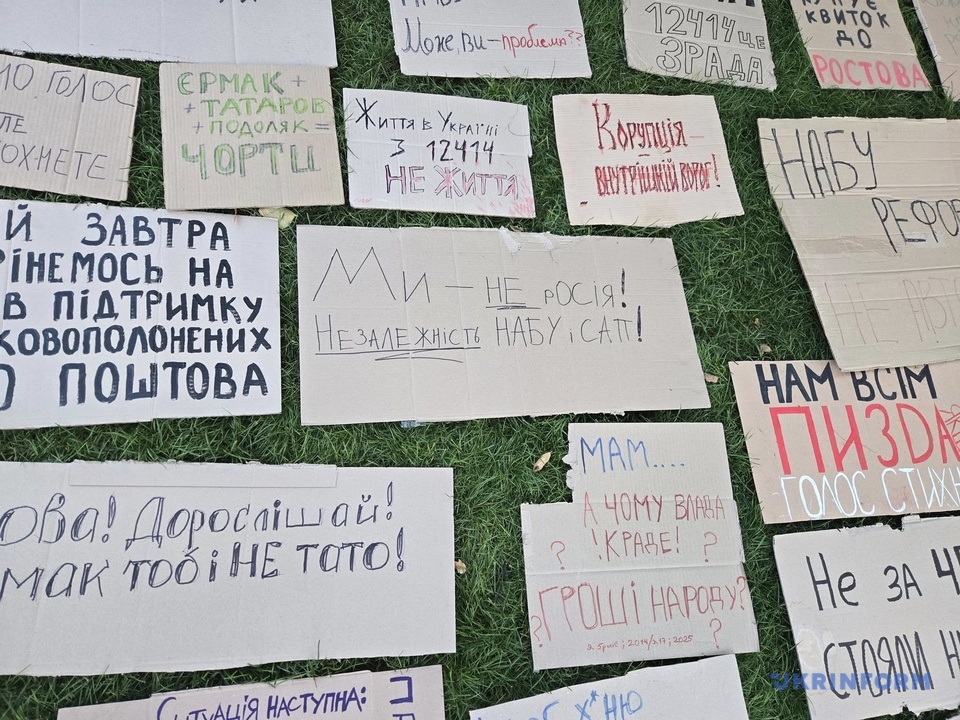 Може, ви – проблема??
12414 це
ЗРАДА
КВИТОК
ДО
РОСТОВА
ГОЛОС
ЄРМАК +
+ ТАТАРОВ
+ ПОДОЛЯК =
ЧОРТИ
Життя в Україні
з 12414
НЕ ЖИТТЯ
Корупція –
внутрішній ворог!
НАБУ
Й ЗАВТРА
РІНЕМОСЬ НА
В ПІДТРИМКУ
КОВОПОЛОНЕНИХ
О ПОШТОВА
Ми – НЕ росія!
Незалежність НАБУ і САП!
НАМ ВСІМ
ПИЗДА
ГОЛОС СТИХ
ова! Дорослішай!
мак тобі НЕ тато!
МАМ....
А ЧОМУ ВЛАДА
? !КРАДЕ! ?
?ГРОШІ НАРОДУ?
?
Не за
СТОЯЛИ
Ситуація наступна:
х*ню
UKRINFORM